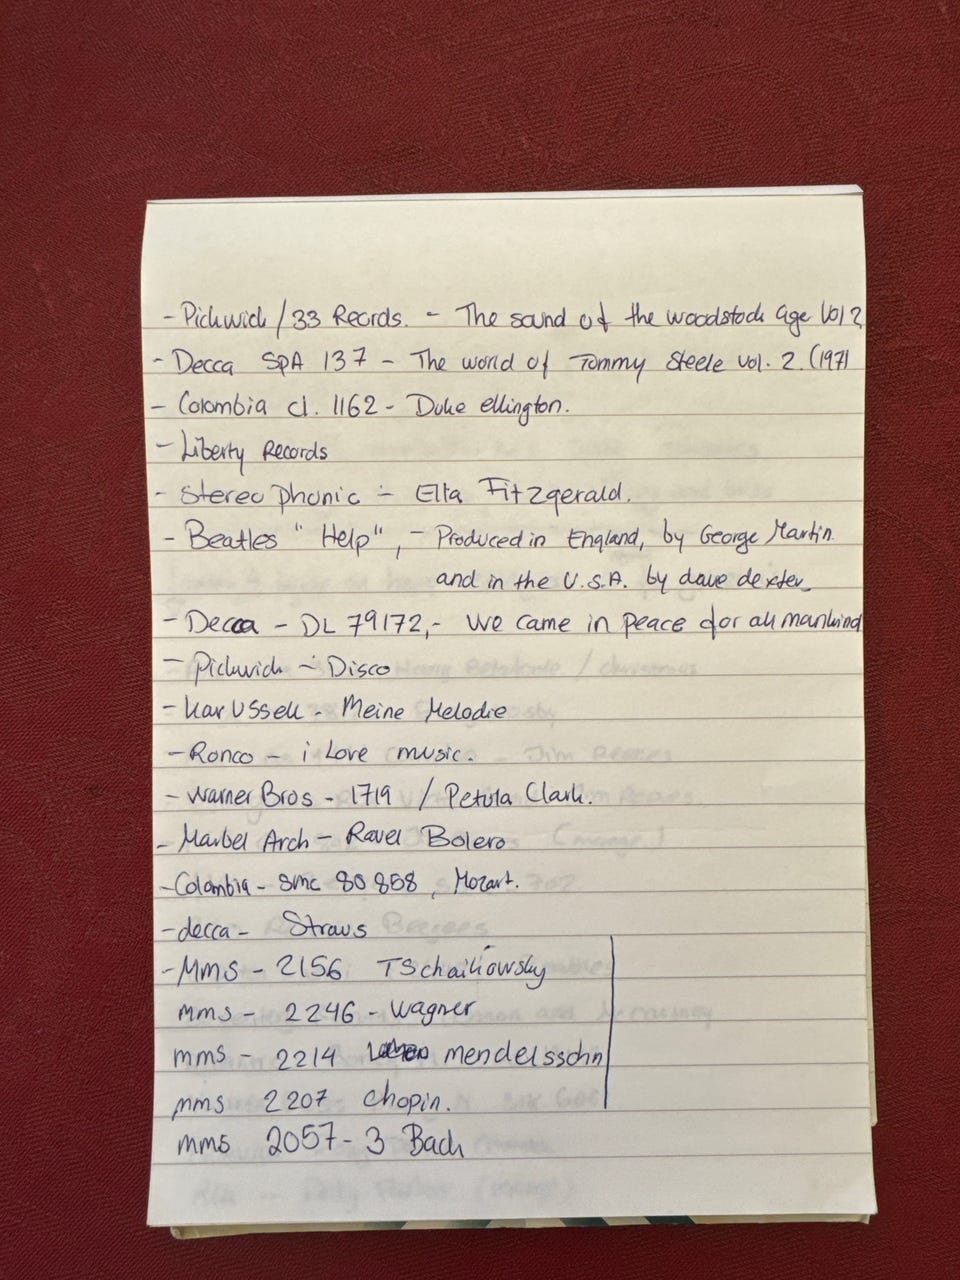 - Pickwick / 33 Records. - The sound of the woodstock age Vol 2
- Decca SPA 137 - The world of Tommy Steele Vol. 2. (1971
- Colombia cl. 1162 - Duke ellington.
- Liberty Records
- Stereo phonic - Ella Fitzgerald.
- Beatles "Help", - Produced in England, by George Martin.
and in the U.S.A. by dave dexter
- Decca - DL 79172,- We came in peace for all mankind
- Pickwick - Disco
- Karussell - Meine Melodie
- Ronco - i Love music.
- Warner Bros - 1719 / Petula Clark.
- Marbel Arch - Ravel Bolero
- Colombia - smc 80 858, Mozart.
- decca - Straus
- MMS - 2156 TSchaikiowsky
mms - 2246 - Wagner
mms - 2214 mendelssohn
mms 2207 Chopin.
mms 2057 - 3 Bach